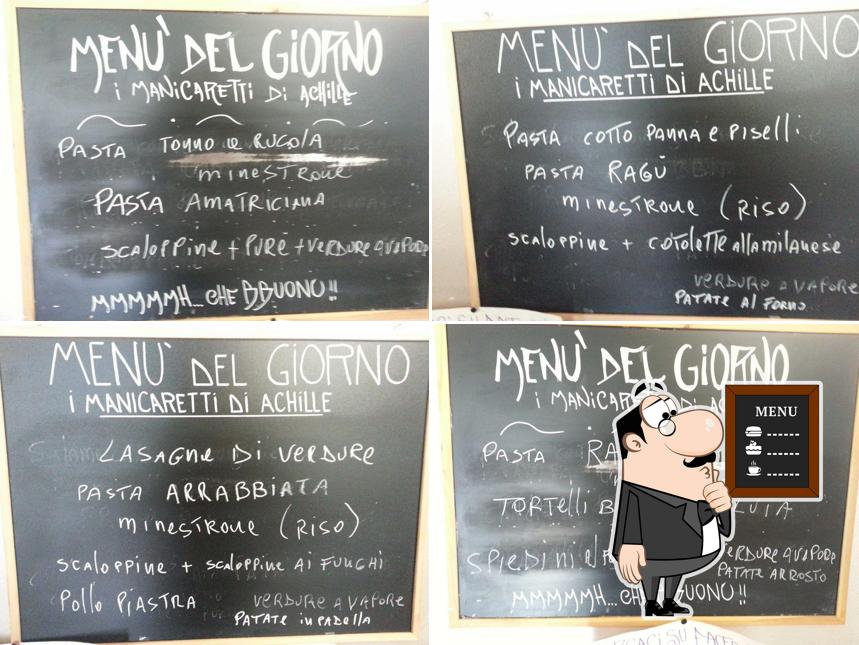 MENU' DEL GIORNO
i MANICARETTI Di ACHILLE
PASTA TONNO e RUCOLA
MINESTRONE
PASTA AMATRICIANA
SCALOPPINE + PURE + VERDURE A VAPORE
MMMMMH... CHE BBUONO!!
MENU' DEL GIORNO
i MANICARETTI Di ACHILLE
PASTA COTTO PANNA e PISELLI
PASTA RAGÙ
MINESTRONE (RISO)
SCALOPPINE + COTOLETTE alla MILANESE
VERDURE A VAPORE
PATATE Al FORNO
MENU' DEL GIORNO
i MANICARETTI Di ACHILLE
LASAGNE DI VERDURE
PASTA ARRABBIATA
MINESTRONE (RISO)
SCALOPPINE + SCALOPPINE AI FUNGHI
POLLO PIASTRA VERDURE A VAPORE
PATATE IN PADELLA
MENU' DEL GIORNO
i MANICARETTI
MENU
PASTA
TORTELLI
SPIEDINI VERDURE A VAPORE
PATATE ARROSTO
MMMMMH... BBUONO!!